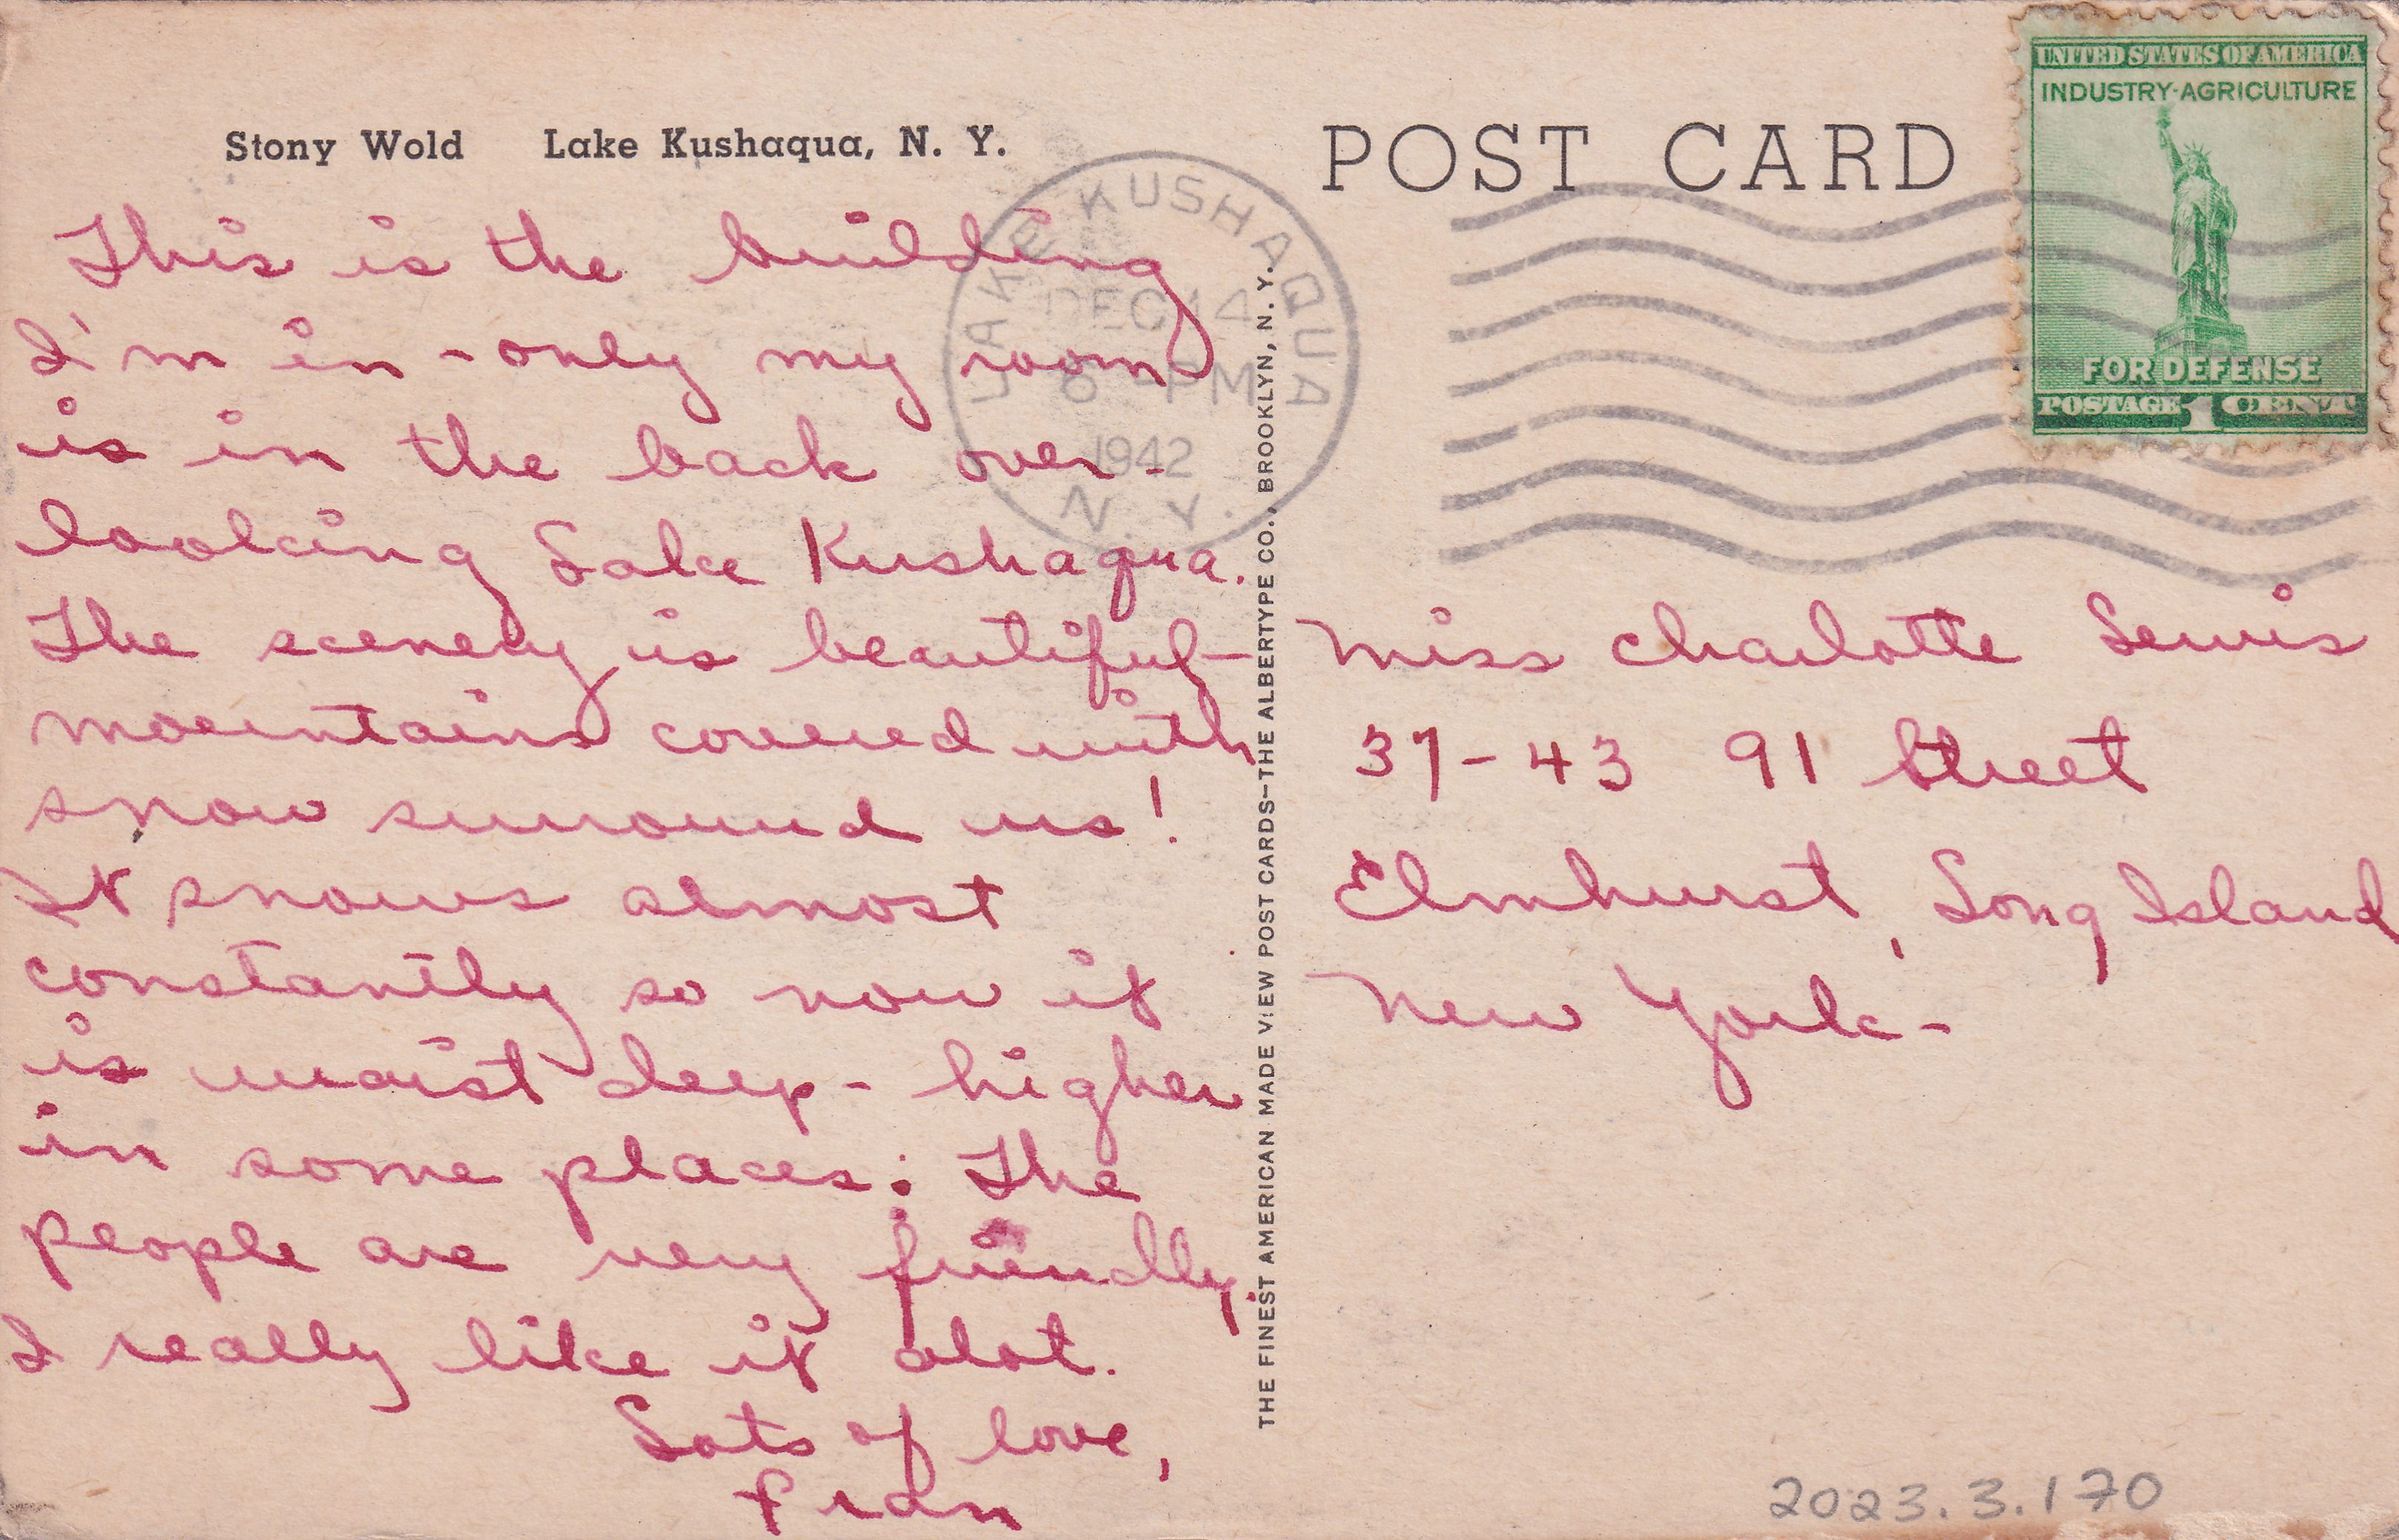 Stony Wold Lake Kushaqua, N. Y.
This is the building
I'm in - only my room
is in the back over-
looking Lake Kushaqua.
The scenery is beautiful -
mountains covered with
snow surround us!
It snows almost
constantly so now it
is waist deep - higher
in some places. The
people are very friendly.
I really like it alot.
Lots of love,
Fran
LAKE KUSHAQUA
DEC 14
PM
1942
N. Y.
THE FINEST AMERICAN MADE VIEW POST CARDS—THE ALBERTYPE CO., BROOKLYN, N. Y.
POST CARD
UNITED STATES OF AMERICA
INDUSTRY·AGRICULTURE
FOR DEFENSE
POSTAGE 1 CENT
Miss Charlotte Lewis
37-43 91 Street
Elmhurst, Long Island
New York -
2023.3.170